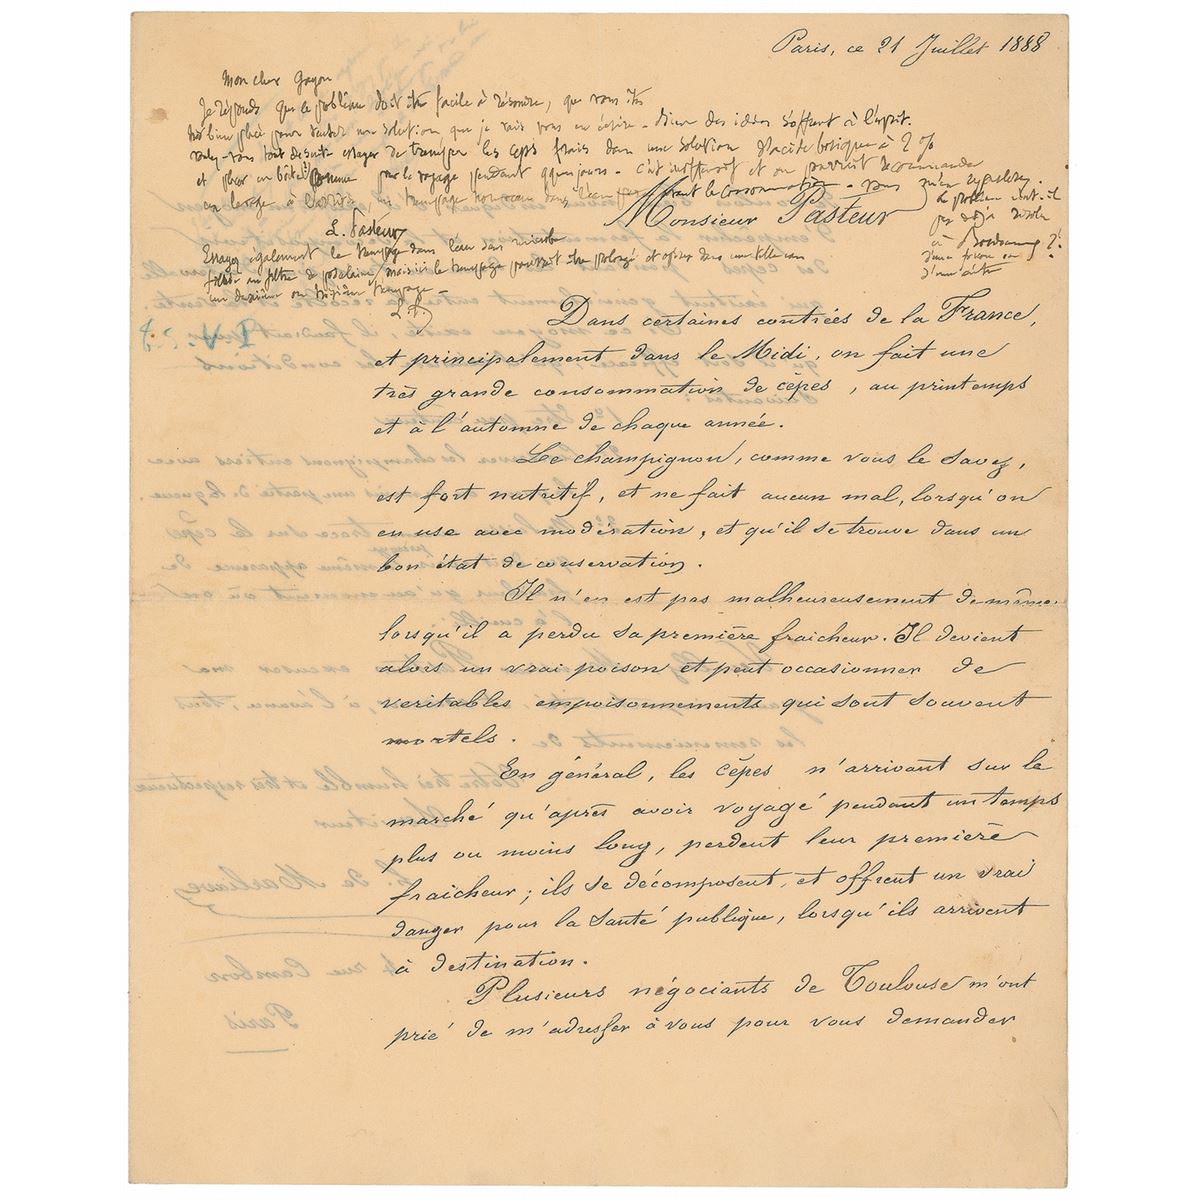 Paris, ce 21 Juillet 1888
Mon cher Gayon
Je réponds que le problème doit être facile à résoudre, que vous êtes
très bien placé pour une solution que je vais vous en écrire. des idées s'offrent à l'esprit.
voulez-vous tout de suite essayer de tremper les cèpes frais dans une solution d'acide borique à 2 %
et placer en boîte comme pour le voyage pendant quelques jours. c'est inoffensif et on pourrait recommander
un lavage à l'arrivée, un trempage nouveau dans l'eau avant la consommation.
le problème n'est-il
pas déjà résolu
à Bordeaux ?
d'une façon ou
d'une autre
L. Pasteur
Essayez également le trempage dans l'eau sans microbe
filtrée au filtre de porcelaine, mais ici le trempage pourrait être prolongé et opérer dans une telle eau
un deuxième ou troisième trempage.
L. P.
Monsieur Pasteur
Dans certaines contrées de la France,
et principalement dans le Midi, on fait une
très grande consommation de cêpes, au printemps
et à l'automne de chaque année.
Le champignon, comme vous le savez,
est fort nutritif, et ne fait aucun mal, lorsqu'on
en use avec modération, et qu'il se trouve dans un
bon état de conservation.
Il n'en est pas malheureusement de même
lorsqu'il a perdu sa première fraicheur. Il devient
alors un vrai poison et peut occasionner de
veritables empoisonnements qui sont souvent
mortels.
En général, les cêpes n'arrivant sur le
marché qu'après avoir voyagé pendant un temps
plus ou moins long, perdent leur première
fraicheur ; ils se décomposent, et offrent un vrai
danger pour la santé publique, lorsqu'ils arrivent
à destination.
Plusieurs négociants de Toulouse m'ont
prié de m'adresser à vous pour vous demander